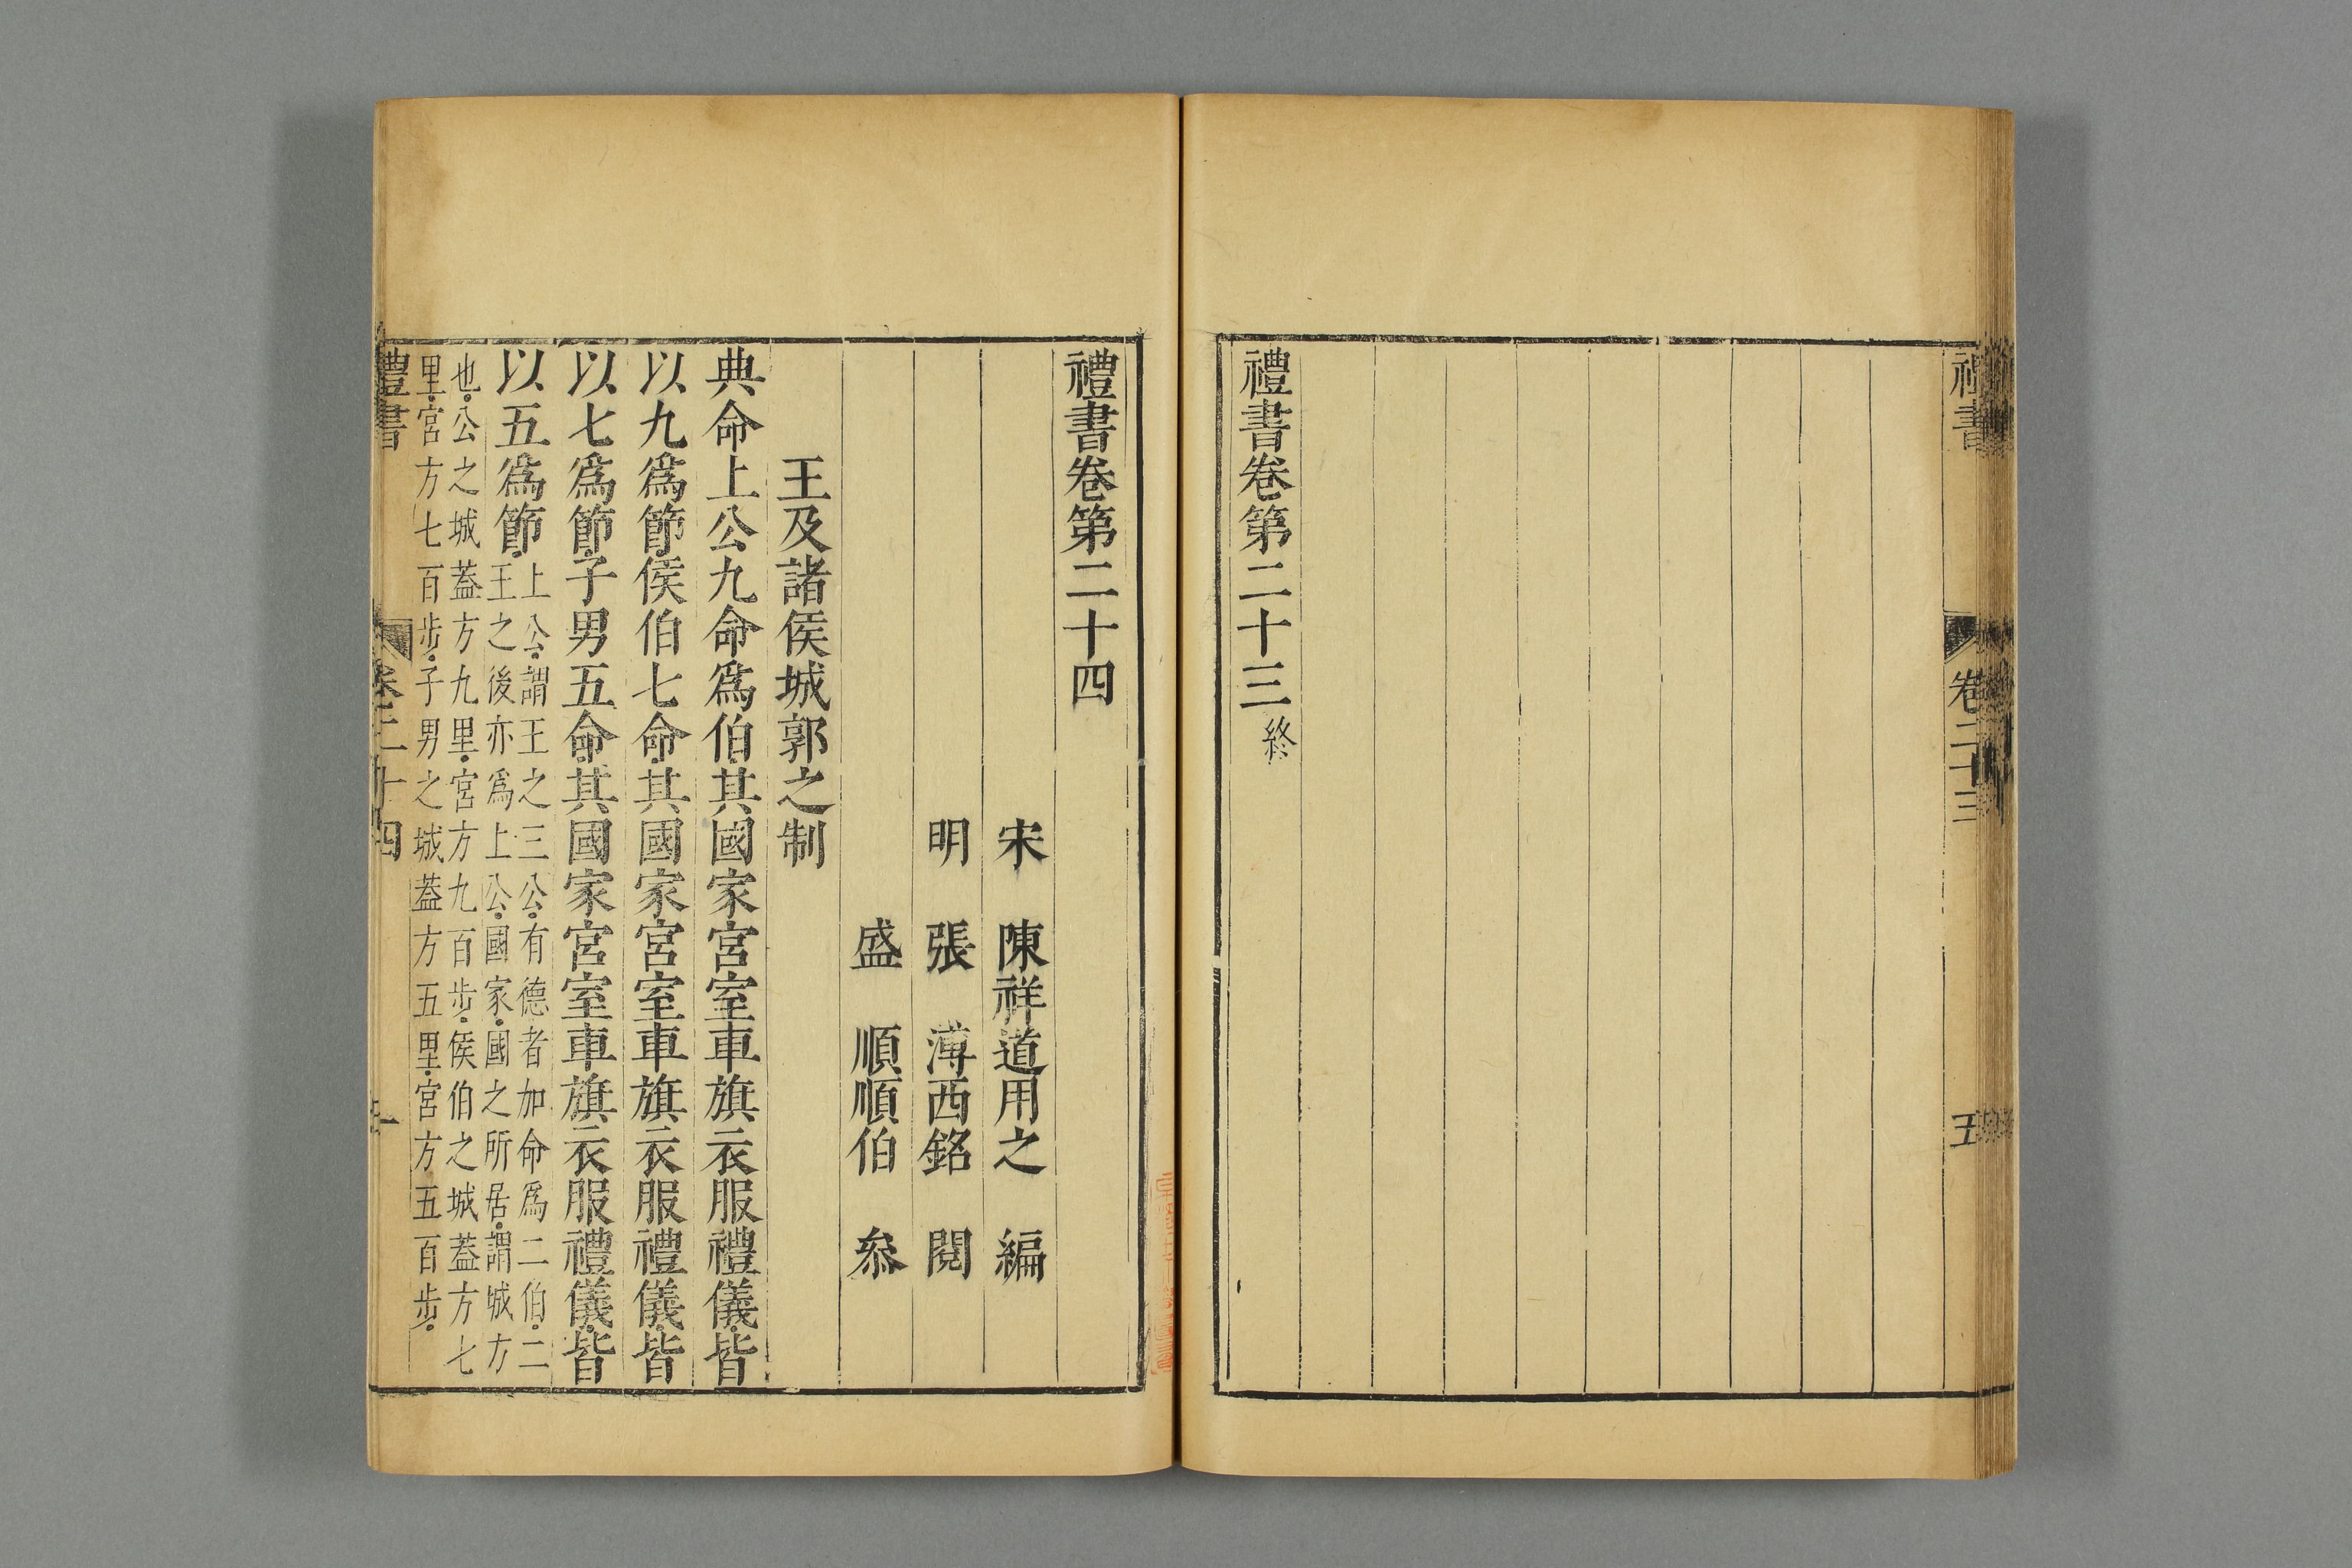 禮書
卷二十三
五
禮書卷第二十三終
禮書卷第二十四
宋 陳祥道用之 編
明 張 溥西銘 閱
盛 順順伯 叅
王及諸侯城郭之制
典命上公九命爲伯其國家宮室車旗衣服禮儀皆
以九爲節侯伯七命其國家宮室車旗衣服禮儀皆
以七爲節子男五命其國家宮室車旗衣服禮儀皆
以五爲節
上公謂王之三公有德者加命爲二伯二
王之後亦爲上公國家國之所居謂城方
也公之城葢方九里宮方九百步侯伯之城葢方七
里宮方七百步子男之城葢方五里宮方五百步
禮書
卷二十四
一